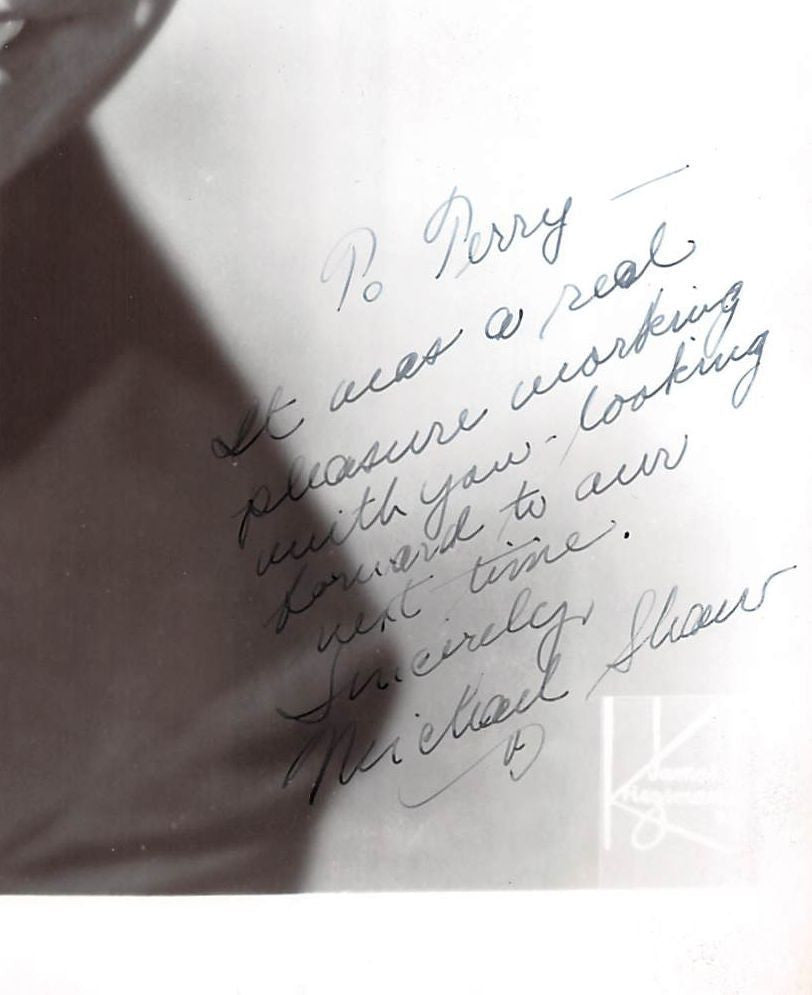 To Perry —
It was a real
pleasure working
with you - looking
forward to our
next time.
Sincerely,
Michael Shaw
James
Kriegsmann